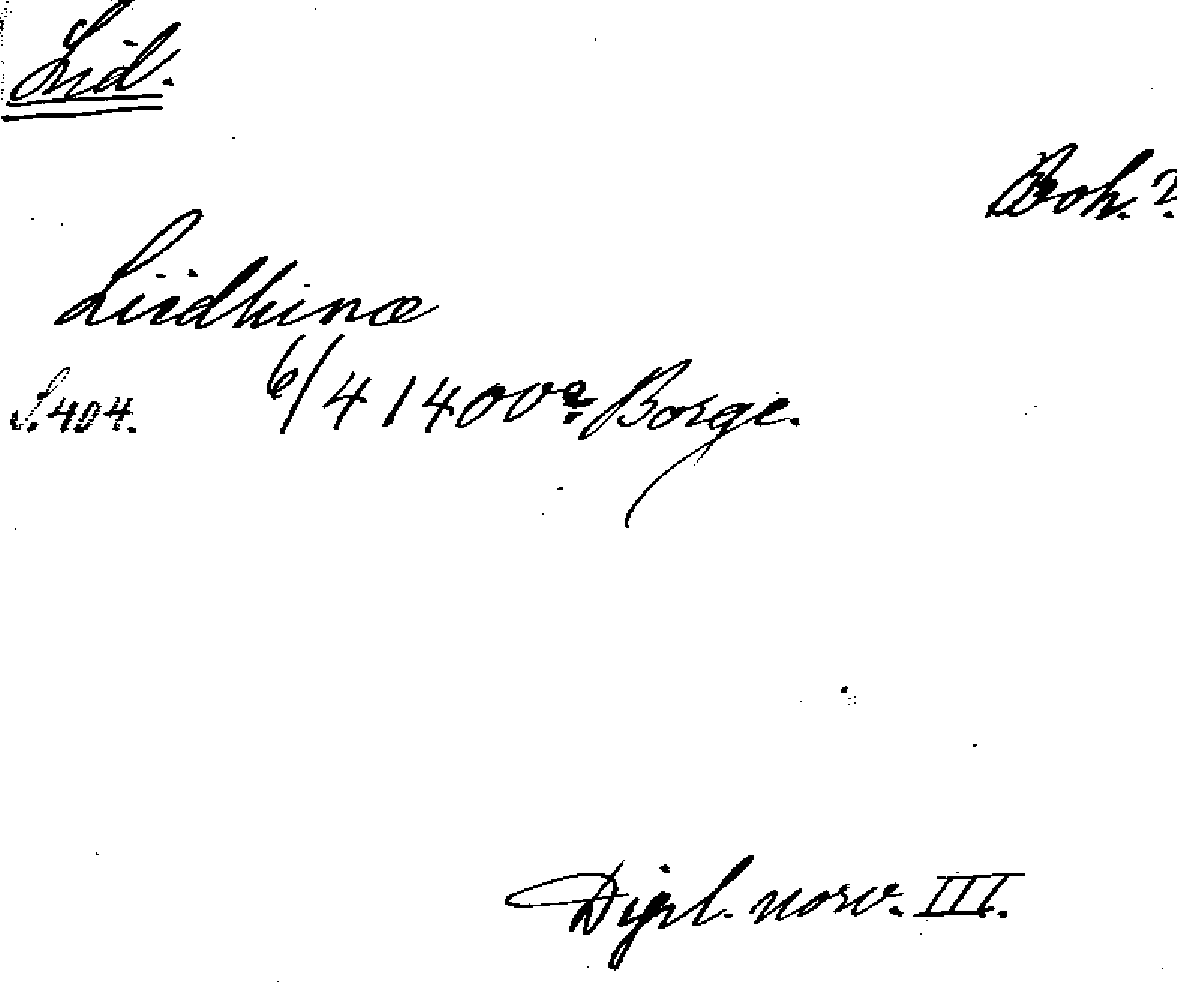 Lid.
Boh.?
Liidhinæ
S. 404. 6/4 1400 Borge.
Dipl. norv. III.